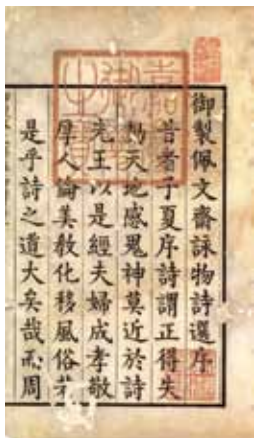 御製佩文齋詠物詩選序
昔者子夏序詩謂正得失
動天地感鬼神莫近於詩
先王以是經夫婦成孝敬
厚人倫美教化移風俗若
是乎詩之道大矣哉而周